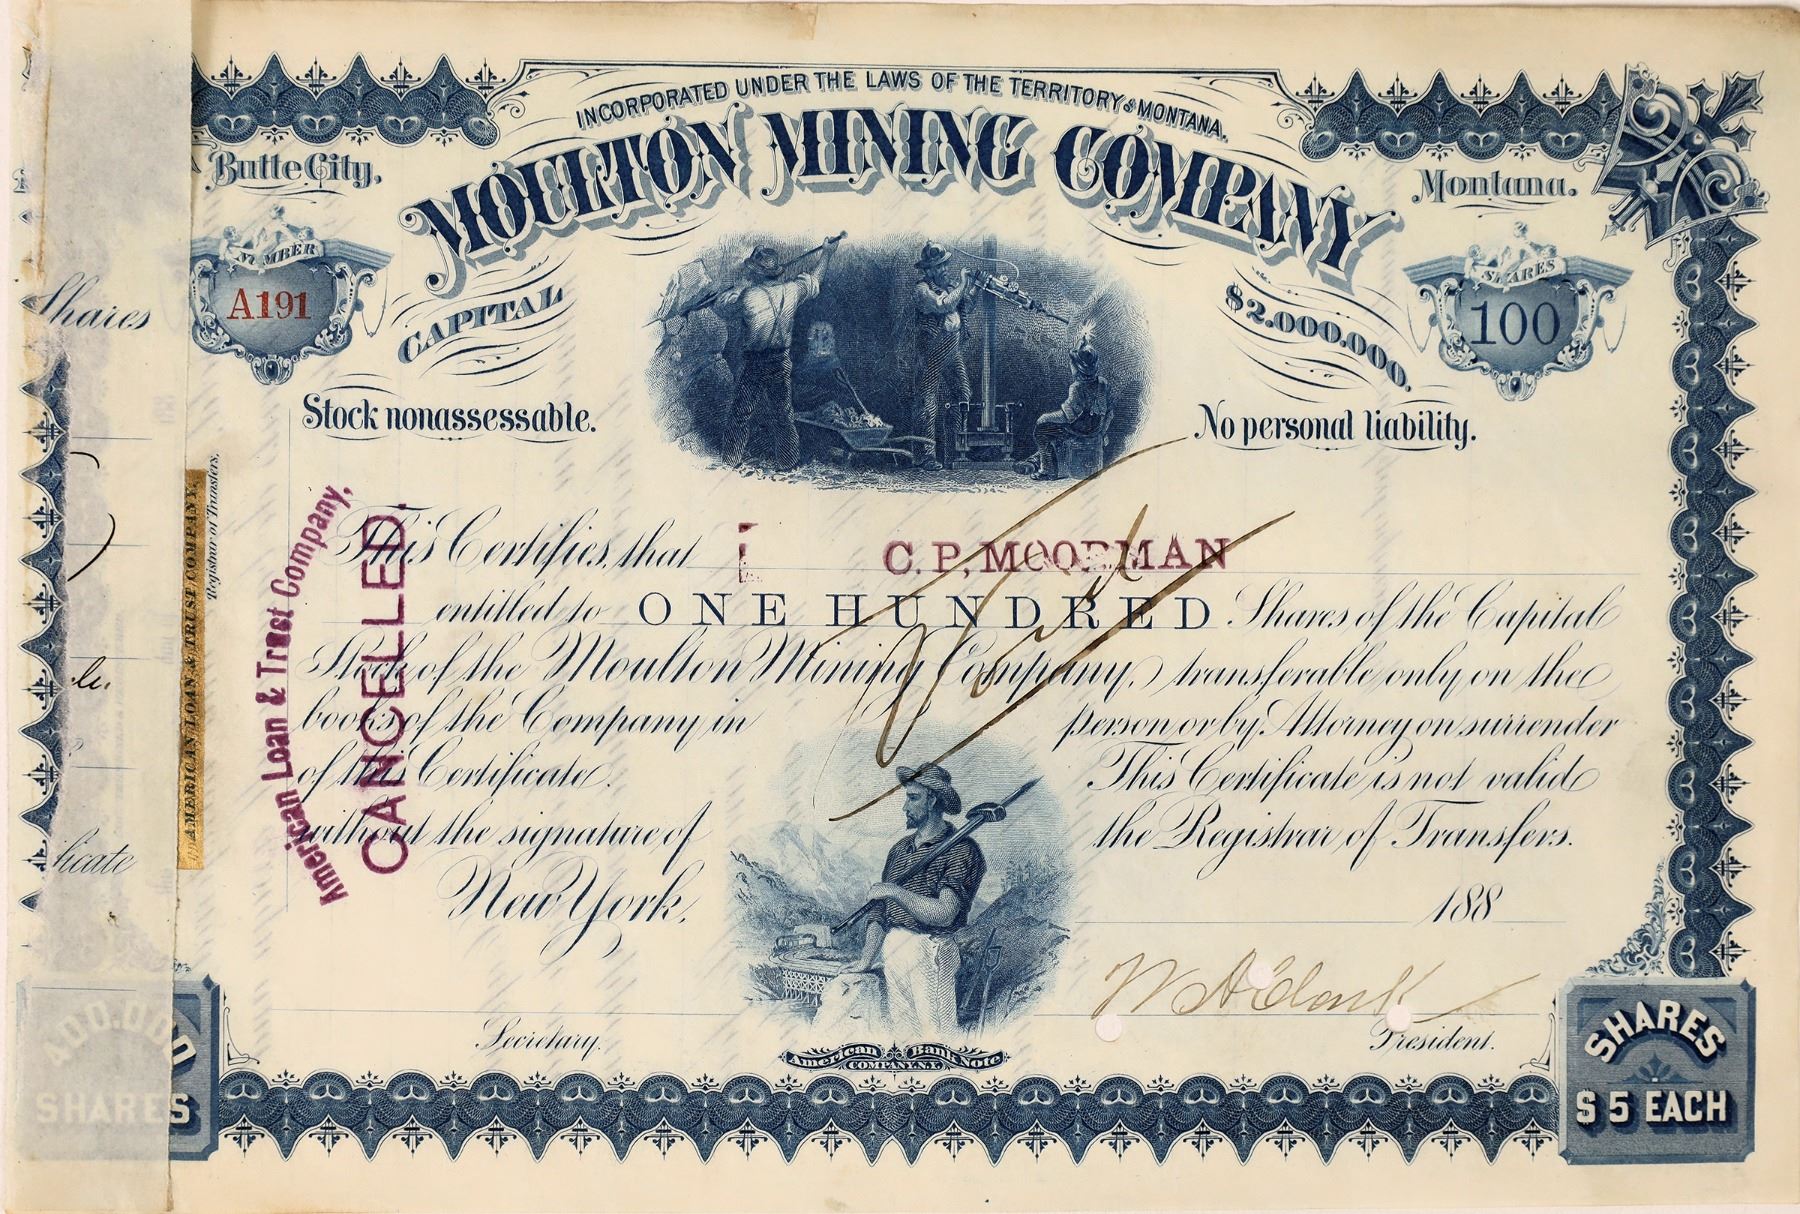 INCORPORATED UNDER THE LAWS OF THE TERRITORY OF MONTANA.
Butte City,
MOULTON MINING COMPANY
Montana.
NUMBER
A191
CAPITAL
$2.000.000.
SHARES
100
Stock nonassessable.
No personal liability.
Shares
Registrar of Transfers.
AMERICAN LOAN & TRUST COMPANY,
American Loan & Trust Company,
CANCELLED.
This Certifies, that C.P. MOORMAN
entitled to ONE HUNDRED Shares of the Capital
Stock of the Moulton Mining Company, transferable only on the
books of the Company in person or by Attorney on surrender
of this Certificate. This Certificate is not valid
without the signature of the Registrar of Transfers.
ficate
New York,
188
Void
W A Clark
Secretary.
President.
American Bank Note
COMPANY, N.Y.
400.000
SHARES
SHARES
$5 EACH